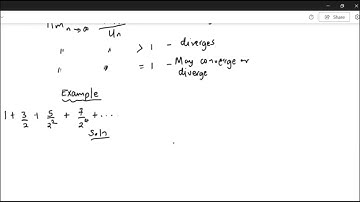 lim n→∞ Un
" " > 1 – diverges
" " = 1 – May converge or diverge
Example
1 + 3/2 + 5/2² + 7/2³ + ...
Soln